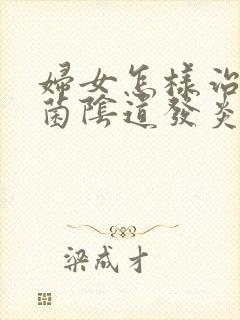 婦女怎樣治
菌陰道發炎
梁成才